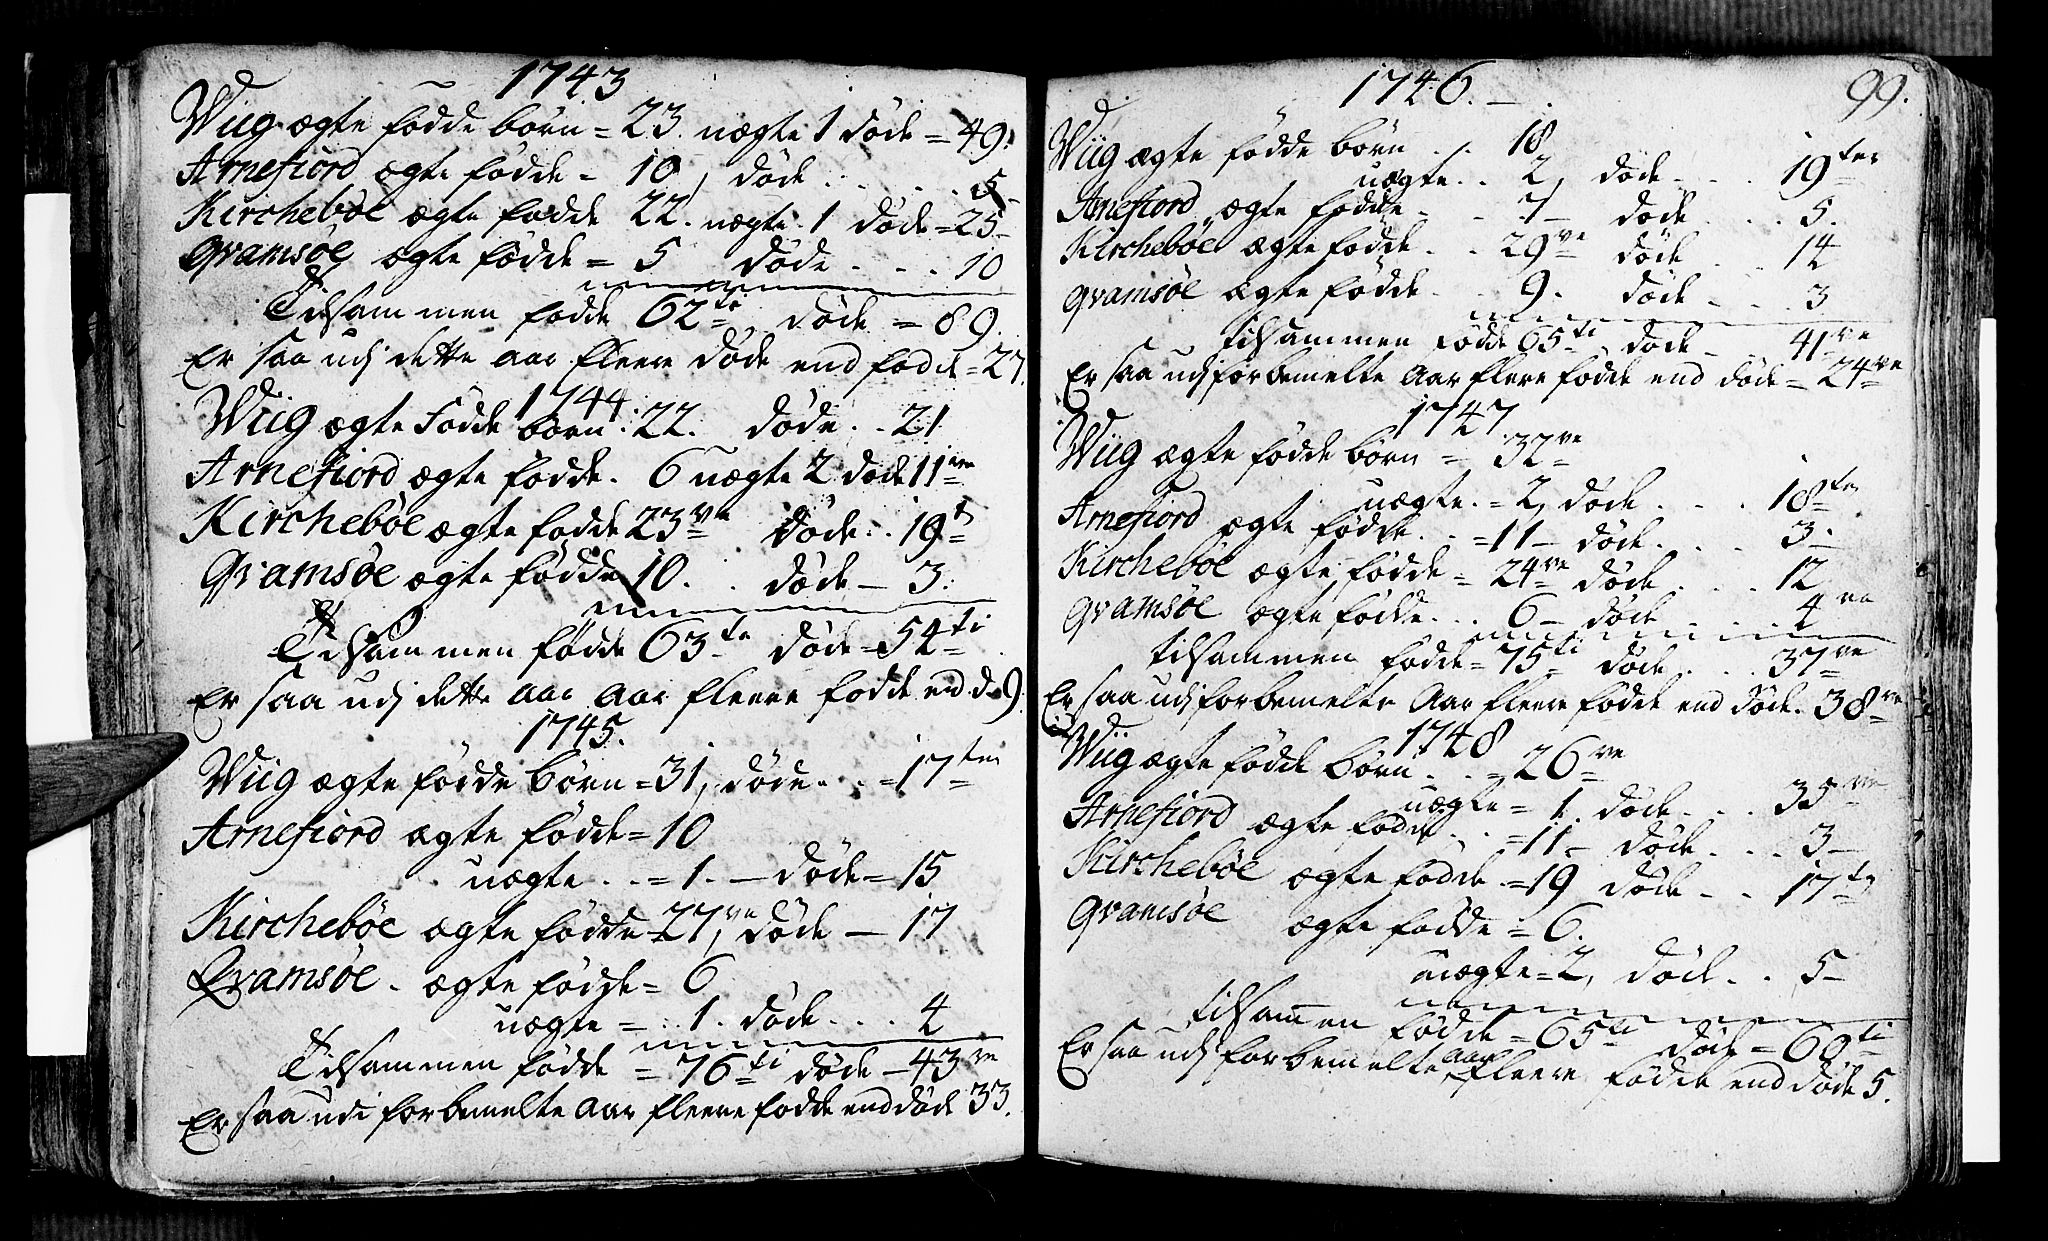 1743
Wiig ægte fødde børn = 23. uægte 1 døde = 49.
Arnefiord ægte fødde - 10, døde . . . . . 5
Kirchebøe ægte fødde 22. uægte. 1 døde = 25-
Qvamsøe ægte fødde = 5 døde . . . 10
Tilsammen fødde 62ti døde = 89.
Er saa udj dette aar fleere døde end fødde = 27.
1744
Wiig ægte Fødde børn : 22. døde . . 21
Arnefiord ægte fødde . 6 uægte 2 døde 11ve
Kirchebøe ægte fødde 23ve døde . . 19t
Qvamsøe ægte fødde 10. døde - 3.
Tilsammen fødde 63te døde = 54ti
Er saa udj dette aar aar fleere fødde end d. 9
1745.
Wiig ægte fødde børn = 31, døde . . = 17ten
Arnefiord ægte fødde = 10
uægte . . = 1. - døde = 15
Kirchebøe ægte fødde = 27ve, døde - 17
Qvamsøe - ægte fødde = 6
uægte = . . 1. døde . . . 4
Tilsammen fødde = 76ti døde - 43ve
Er saa udi forbemelte aar fleere fødde end døde 33.
99.
1746.-
Wiig ægte fødde børn . . 18
uægte . . 2, døde . . . 19ten
Arnefiord ægte fødde - . 7 - døde . . . 5.
Kirchebøe ægte fødde . . 29ve døde . . 14
Qvamsøe ægte fødde . . 9. døde - . . 3
tilsammen fødde 65ti døde - 41ve
Er saa udj forbemelte Aar flere fødde end døde = 24ve
1747
Wiig ægte fødde børn = 32ve
uægte . = 2, døde . . . 18ten
Arnefiord ægte fødde . . = 11 - døde . . . 3.
Kirchebøe ægte fødde = 24ve døde . . . 12
Qvamsøe ægte fødde . . . 6 - døde . . . 4ve
tilsammen fødde = 75ti døde . . . 37ve
Er saa udj forbemelte Aar fleere fødde end døde . 38ve
1748
Wiig ægte fødde børn . . = 26ve
uægte = 1. døde . . . 35ve
Arnefiord ægte fødde . . = 11 - døde . . . 3 -
Kirchebøe ægte fødde . = 19 døde - . . 17t
Qvamsøe ægte fødde = 6.
uægte = 2, døde . . 5 -
tilsammen fødde = 65ti døde = 60ti
Er saa udj forbemelte aar fleere fødde end døde 5.